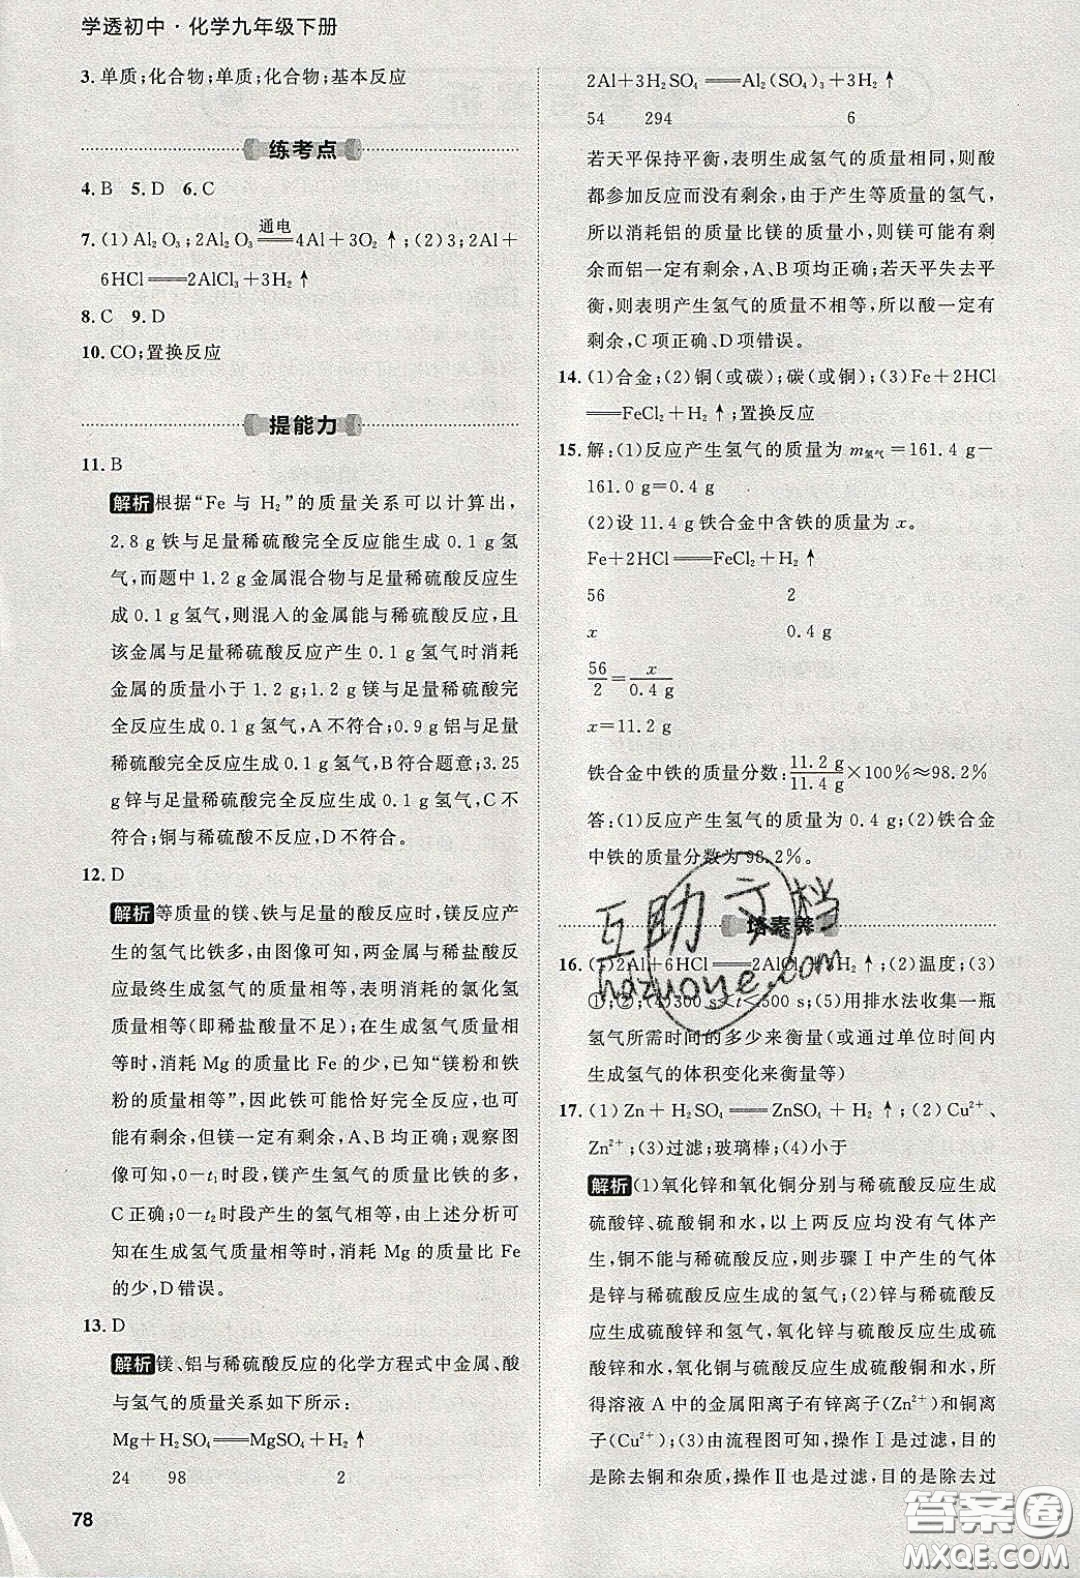 学透初中·化学九年级下册
3.单质;化合物;单质;化合物;基本反应
练考点
4.B 5.D 6.C
7.(1)Al₂O₃;2Al₂O₃ 通电 4Al+3O₂↑;(2)3;2Al+
6HCl══2AlCl₃+3H₂↑
8.C 9.D
10.CO;置换反应
提能力
11.B
解析 根据“Fe 与 H₂”的质量关系可以计算出,
2.8 g铁与足量稀硫酸完全反应能生成0.1 g氢
气,而题中1.2 g金属混合物与足量稀硫酸反应生
成0.1 g氢气,则混入的金属能与稀硫酸反应,且
该金属与足量稀硫酸反应产生0.1 g氢气时消耗
金属的质量小于1.2 g;1.2 g镁与足量稀硫酸完
全反应生成0.1 g氢气,A不符合;0.9 g铝与足量
稀硫酸完全反应生成0.1 g氢气,B符合题意;3.25
g锌与足量稀硫酸完全反应生成0.1 g氢气,C不
符合;铜与稀硫酸不反应,D不符合。
12.D
解析 等质量的镁、铁与足量的酸反应时,镁反应产
生的氢气比铁多,由图像可知,两金属与稀盐酸反
应最终生成氢气的质量相等,表明消耗的氯化氢
质量相等(即稀盐酸量不足);在生成氢气质量相
等时,消耗 Mg 的质量比 Fe 的少,已知“镁粉和铁
粉的质量相等”,因此铁可能恰好完全反应,也可
能有剩余,但镁一定有剩余,A、B均正确;观察图
像可知,0—t₁时段,镁产生氢气的质量比铁的多,
C正确;0—t₂时段产生的氢气相等,由上述分析可
知在生成氢气质量相等时,消耗 Mg 的质量比 Fe
的少,D错误。
13.D
解析 镁、铝与稀硫酸反应的化学方程式中金属、酸
与氢气的质量关系如下所示:
Mg+H₂SO₄══MgSO₄+H₂↑
24 98 2
78
2Al+3H₂SO₄══Al₂(SO₄)₃+3H₂↑
54 294 6
若天平保持平衡,表明生成氢气的质量相同,则酸
都参加反应而没有剩余,由于产生等质量的氢气,
所以消耗铝的质量比镁的质量小,则镁可能有剩
余而铝一定有剩余,A、B项均正确;若天平失去平
衡,则表明产生氢气的质量不相等,所以酸一定有
剩余,C项正确、D项错误。
14.(1)合金;(2)铜(或碳);碳(或铜);(3)Fe+2HCl
══FeCl₂+H₂↑;置换反应
15.解:(1)反应产生氢气的质量为m氢气=161.4 g−
161.0 g=0.4 g
(2)设11.4 g铁合金中含铁的质量为x。
Fe+2HCl══FeCl₂+H₂↑
56 2
x 0.4 g
56/2=x/0.4 g
x=11.2 g
铁合金中铁的质量分数:11.2 g/11.4 g×100%≈98.2%
答:(1)反应产生氢气的质量为0.4 g;(2)铁合金
中铁的质量分数为98.2%。
培素养
16.(1)2Al+6HCl══2AlCl₃+3H₂↑;(2)温度;(3)
①;②;(4)300 s<t<500 s;(5)用排水法收集一瓶
氢气所需时间的多少来衡量(或通过单位时间内
生成氢气的体积变化来衡量等)
17.(1)Zn+H₂SO₄══ZnSO₄+H₂↑;(2)Cu²⁺、
Zn²⁺;(3)过滤;玻璃棒;(4)小于
解析 (1)氧化锌和氧化铜分别与稀硫酸反应生成
硫酸锌、硫酸铜和水,以上两反应均没有气体产
生,铜不能与稀硫酸反应,则步骤Ⅰ中产生的气体
是锌与稀硫酸反应生成的氢气;(2)锌与稀硫酸反
应生成硫酸锌和氢气,氧化锌与稀硫酸反应生成
硫酸锌和水,氧化铜与硫酸反应生成硫酸铜和水,所
得溶液A中的金属阳离子有锌离子(Zn²⁺)和铜离
子(Cu²⁺);(3)由流程图可知,操作Ⅰ是过滤,目的
是除去铜和杂质,操作Ⅱ也是过滤,目的是除去过
互助文档
hazuoye.com
答案圈
MXQE.COM